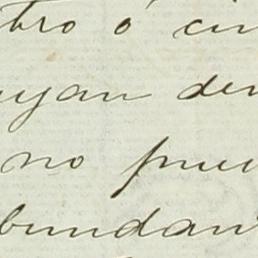 tro ó cin
uyan den
no pue
bundan